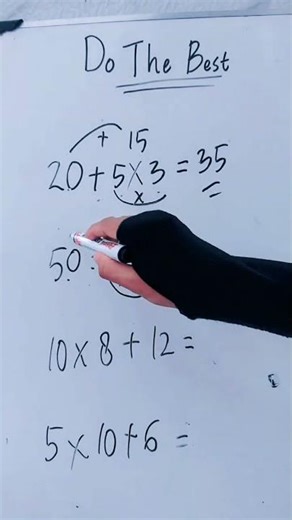 Do The Best
+ 15
20 + 5 x 3 = 35
x
50
10 x 8 + 12 =
5 x 10 + 6 =